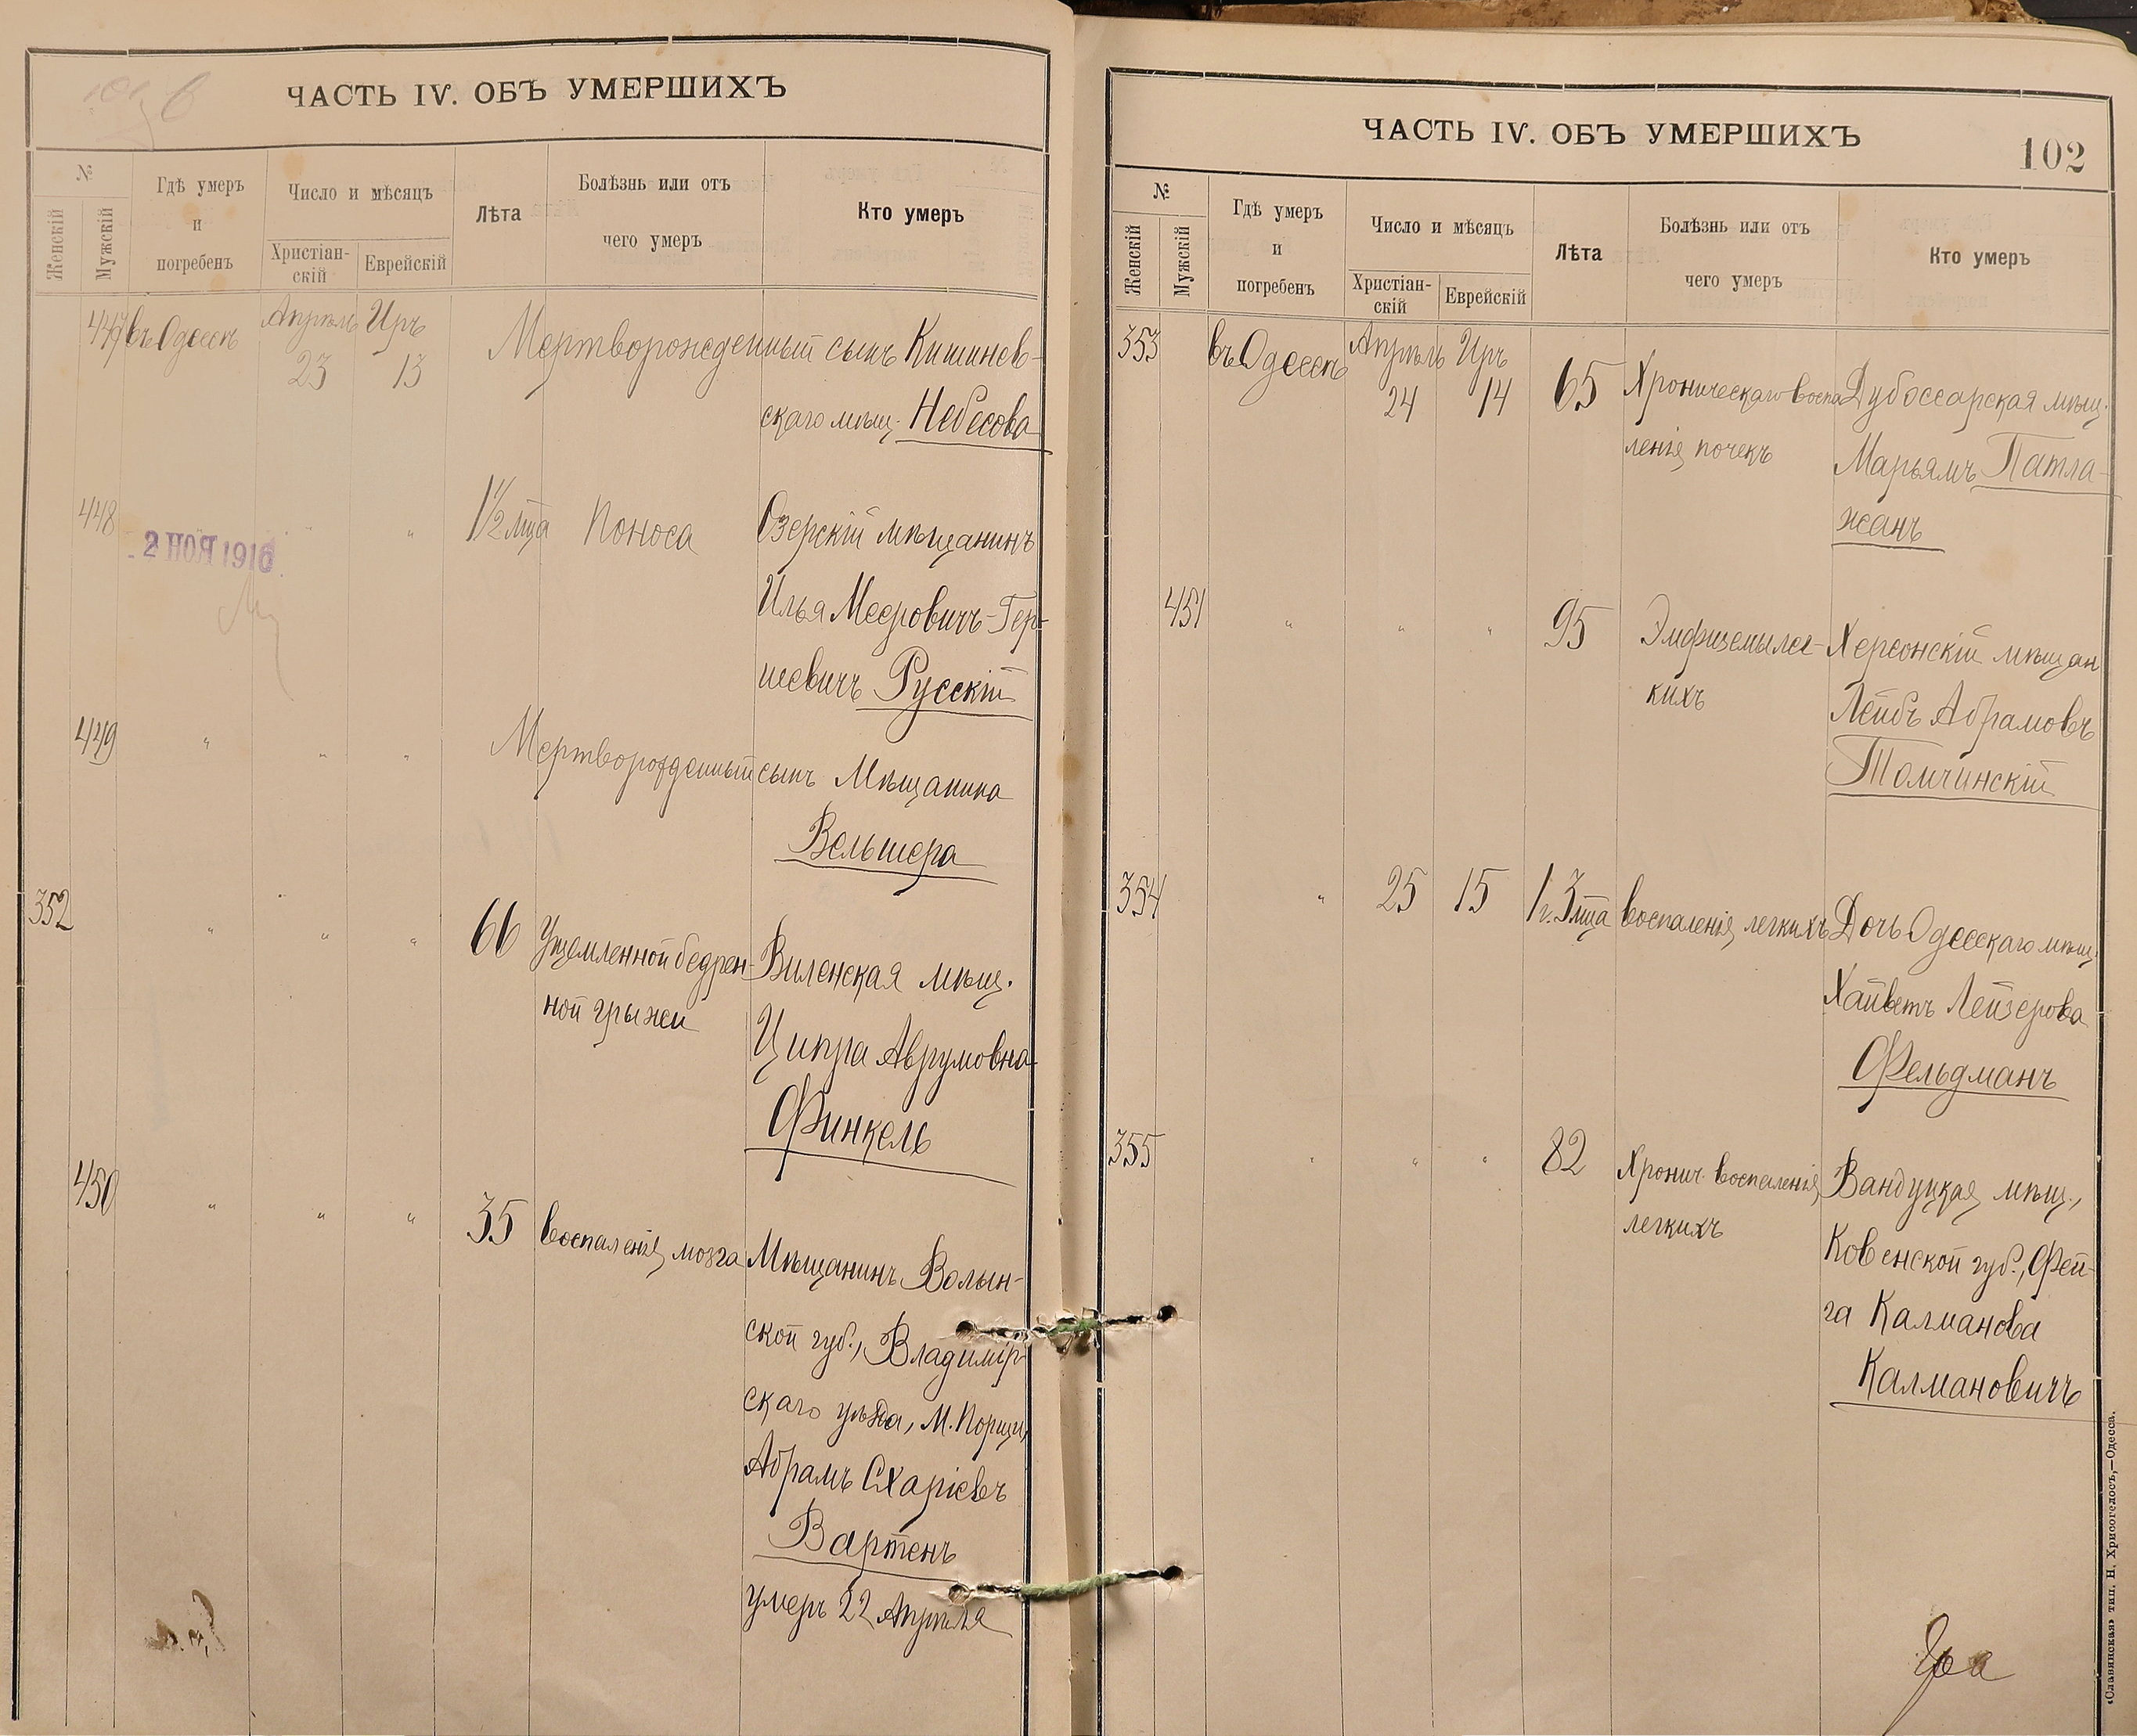 ЧАСТЬ IV. ОБЪ УМЕРШИХЪ
№
Женскій
Мужскій
Гдѣ умеръ
и
погребенъ
Число и мѣсяцъ
Христіан-
скій
Еврейскій
Лѣта
Болѣзнь или отъ
чего умеръ
Кто умеръ
447 въ Одессѣ Апрѣль 23 Иръ 13 Мертворожденный сынъ Кишинев-
скаго мѣщ. Небесова
448 " " 1 1/2 мца Поноса Озерскій мѣщанинъ
2 НОЯ 1916
Илья Мееровичъ-Гер-
шевичъ Русскій
449 " " " Мертворожденный сынъ Мѣщанина
Вельшера
352 " " " 66 Ущемленной бедрен- Виленская мѣщ.
ной грыжи Ципра Аврумовна
Финкель
450 " " " 35 Воспаленія мозга Мѣщанинъ Волын-
ской губ., Владимір-
скаго уѣзда, М.
Абрамъ Схаріевъ
Вартенъ
умеръ 22 Апрѣля
ЧАСТЬ IV. ОБЪ УМЕРШИХЪ
102
№
Женскій
Мужскій
Гдѣ умеръ
и
погребенъ
Число и мѣсяцъ
Христіан-
скій
Еврейскій
Лѣта
Болѣзнь или отъ
чего умеръ
Кто умеръ
353 въ Одессѣ Апрѣль 24 Иръ 14 65 Хроническаго воспа- Дубоссарская мѣщ.
ленія почекъ Марьямъ Патла-
жанъ
451 " " " 95 Эмфиземы лег- Херсонскій мѣщан
кихъ Лейбъ Абрамовъ
Томчинскій
354 " 25 15 1 г. 3 мца Воспаленія легкихъ Дочь Одесскаго мѣщ.
Хайветъ Лейзерова
Фельдманъ
355 " " " 82 Хронич. воспаленія Вандуцкая мѣщ.,
легкихъ Ковенской губ., Фей-
га Калманова
Калмановичъ
«Славянская» тип. Н. Хрисогелосъ,—Одесса.